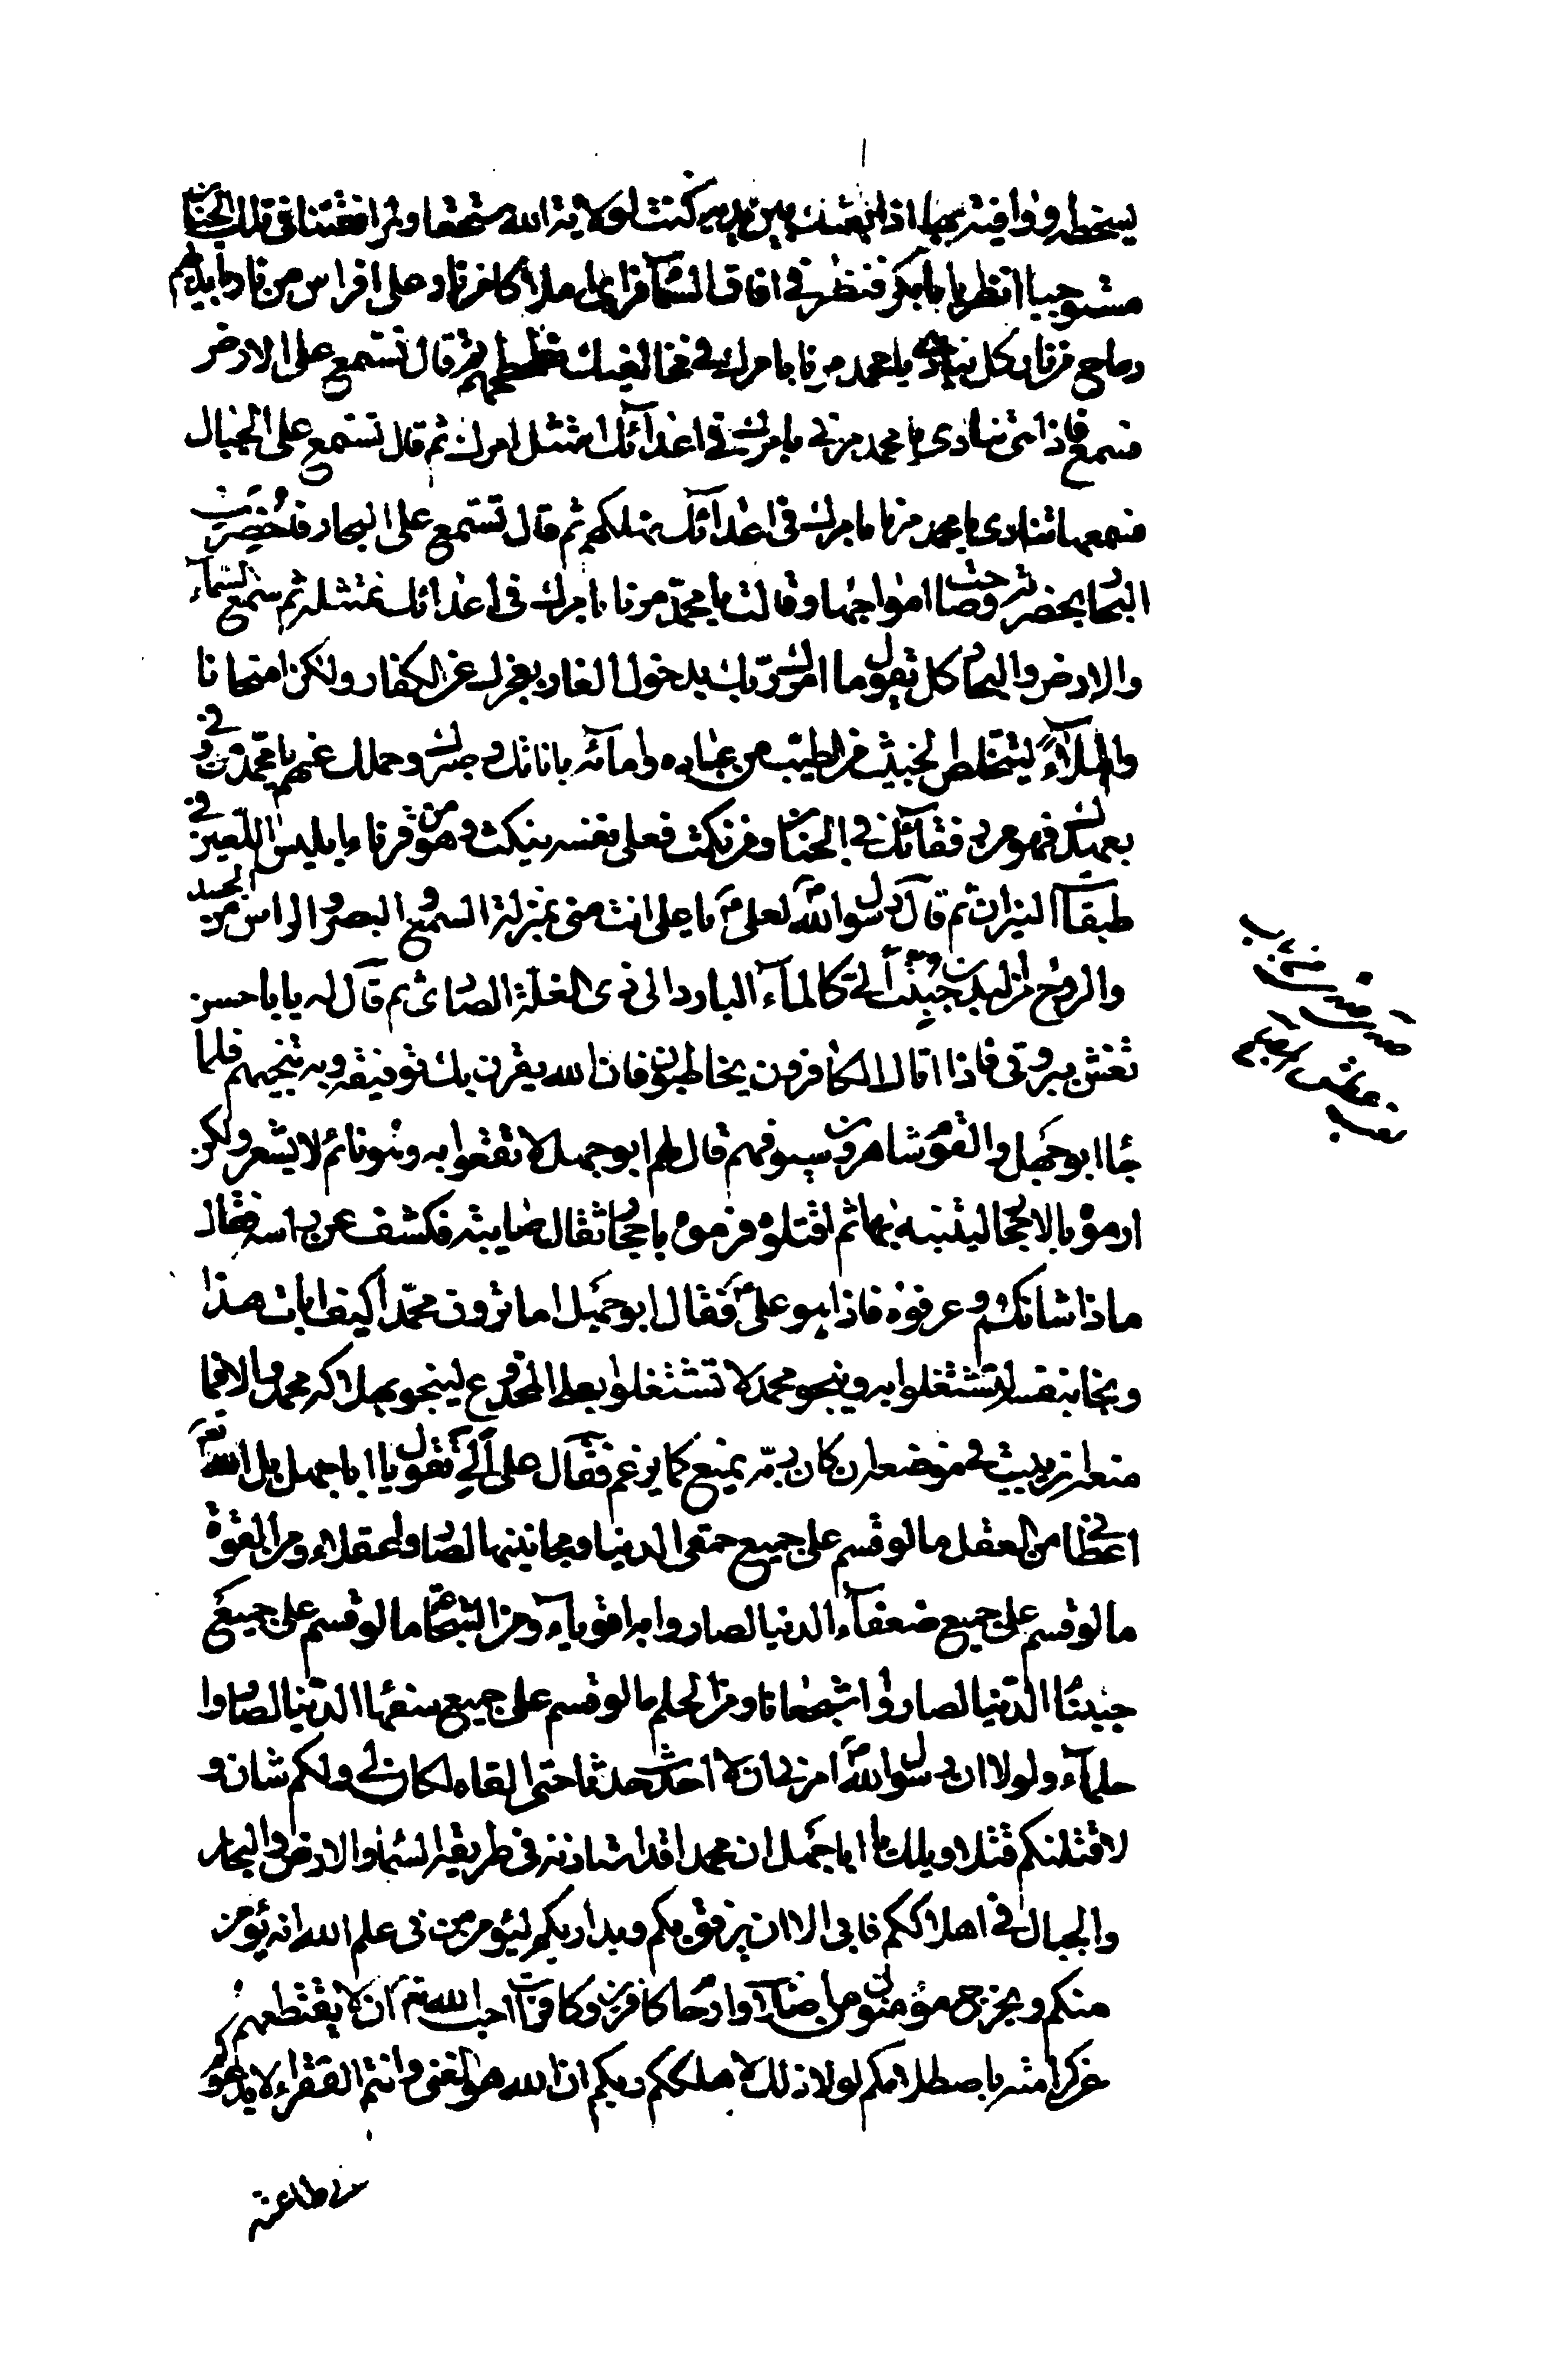 يسخطه ووافيته بها اذا بعثك بين يديه كنت لولاية الله مستحقا ولمرافقتنا في تلك الجنان
مستوجبا انظر يا بابكر فنظر في افاق السماء فراى املاكا من نار على افراس من نار بايديهم
رماح من نار كل ينادي يا محمد مرنا بامرك في مخالفيك نطحطحهم ثم قال تسمع على الارض
فتسمع فاذا هي تنادى يا محمد مرني بامرك في اعدائك امتثل امرك ثم قال تسمع على الجبال
فسمعها تنادى يا محمد مرنا بامرك في اعدائك نهلكهم ثم قال تستمع على البحار فاحضرت
البحار بحضرته وصاحت امواجها وقالت يا محمد مرنا بامرك في اعدائك نمتثله ثم سمع السماء
والارض والبحار كل يقول ما امرك ربك بدخول الغار بعجزك عن الكفار ولكن امتحانا
وابتلاء ليتخلص الخبيث من الطيب من عباده وامائه باناتك وصبرك وحملك عنهم يا محمد من وفى
بعهدك فهو من رفقائك في الجنان ومن نكث فعلى نفسه ينكث وهو من قرناء ابليس اللعين في
طبقات النيران ثم قال رسول الله لعلي يا علي انت مني بمنزلة السمع والبصر والراس من الجسد
والروح من البدن حببت الي كالماء البارد الى ذى الغلة الصادى ثم قال له يا با حسن
تغش ببردتى فاذا اتاك الكافرون يخاطبونك فان الله يقرن بك توفيقه وبه تجيبهم فلما
جاء ابو جهل والقوم شاهرون سيوفهم قال لهم ابو جهل لا تقعوا به وهو نائم لا يشعر ولكن
ارموه بالاحجار لينتبه بها ثم اقتلوه فرموه باحجار ثقال صايبة فكشف عن راسه فقال
ماذا شانكم وعرفوه فاذا هو علي فقال ابو جهل اما ترون محمدا كيف ابات هذا
ونجا بنفسه لتشتغلوا به وينجو محمد لا تشتغلوا بعلي المخدوع لينجو بهلاكه محمد والا فما
منعه ان يبيت في موضعه ان كان ربه يمنع كما يزعم فقال علي الي تقول يا اباجهل بل الله
اعطاني من العقل ما لو قسم على جميع حمقى الدنيا ومجانينها لصاروا عقلاء ومن القوة
ما لو قسم على جميع ضعفاء الدنيا لصاروا به اقوياء ومن الشجاعة ما لو قسم على جميع
جبناء الدنيا لصاروا شجعانا ومن الحلم ما لو قسم على جميع سفهاء الدنيا لصاروا
حلماء ولولا ان رسول الله امرني ان لا احدث حدثا حتى القاه لكان لي ولكم شان و
لاقتلنكم قتلا ويلك يا اباجهل ان محمدا قد استاذنه في طريقه السماء والارض والبحار
والجبال في اهلاككم فابى الا ان يرفق بكم ويداريكم ليؤمن من في علم الله انه يؤمن
منكم ويخرج مؤمنون من اصلاب وارحام كافرين وكافرات احب الله ان لا يقطعهم
عن كرامته باصطلامكم لولا ذلك لاهلككم ربكم ان الله هو الغنى وانتم الفقراء لا يدعوكم